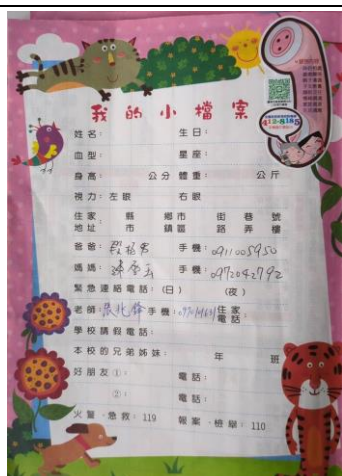 我的小檔案
412-8185
姓名： 生日：
血型： 星座：
身高： 公分 體重： 公斤
視力：左眼 右眼
住家地址 縣市 鄉鎮市區 街路 巷弄 號樓
爸爸： 手機：0911005950
媽媽： 手機：0972042792
緊急連絡電話：(日) (夜)
老師： 手機： 住家電話：
學校請假電話：
本校的兄弟姊妹： 年 班
好朋友①： 電話：
②： 電話：
火警、急救：119 報案、檢舉：110